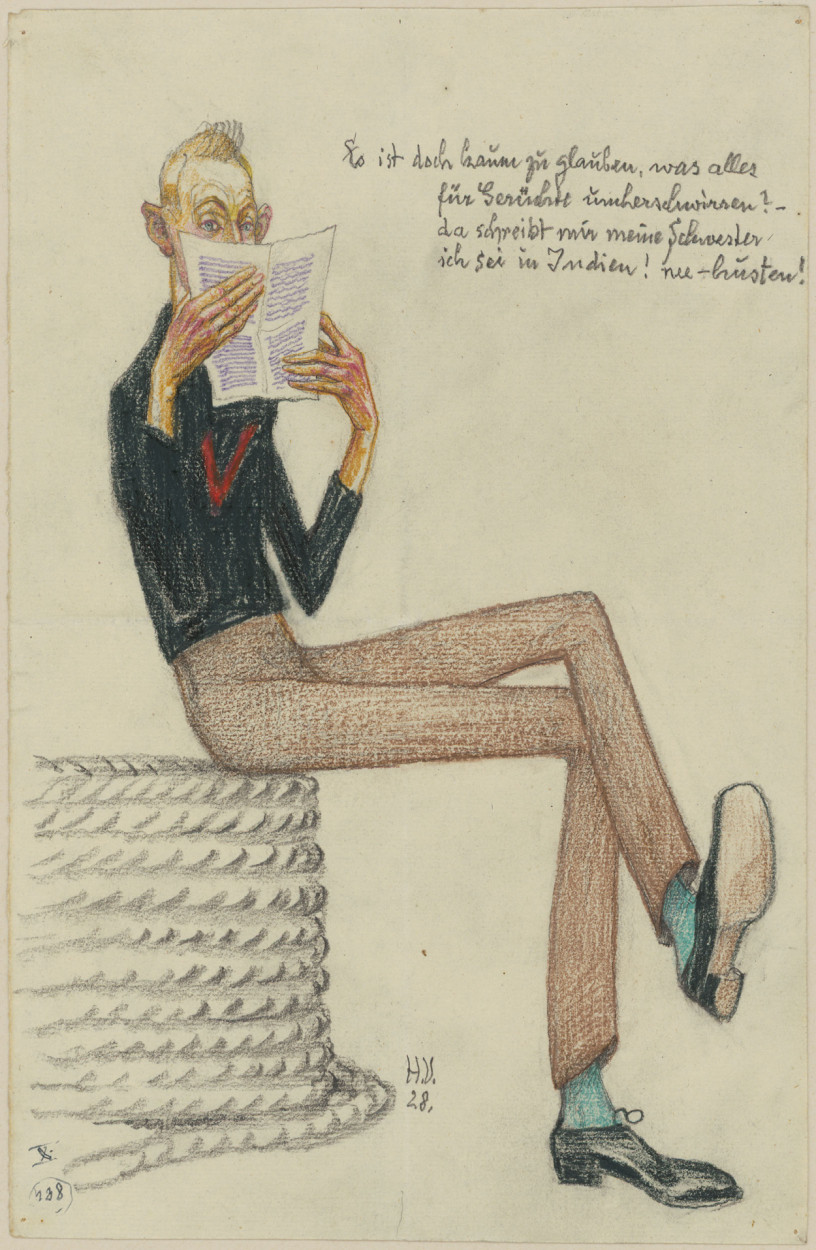 Es ist doch kaum zu glauben, was alles
für Gerüchte umherschwirren? –
da schreibt mir meine Schwester
ich sei in Indien! nee – husten!
V
H.V.
28.